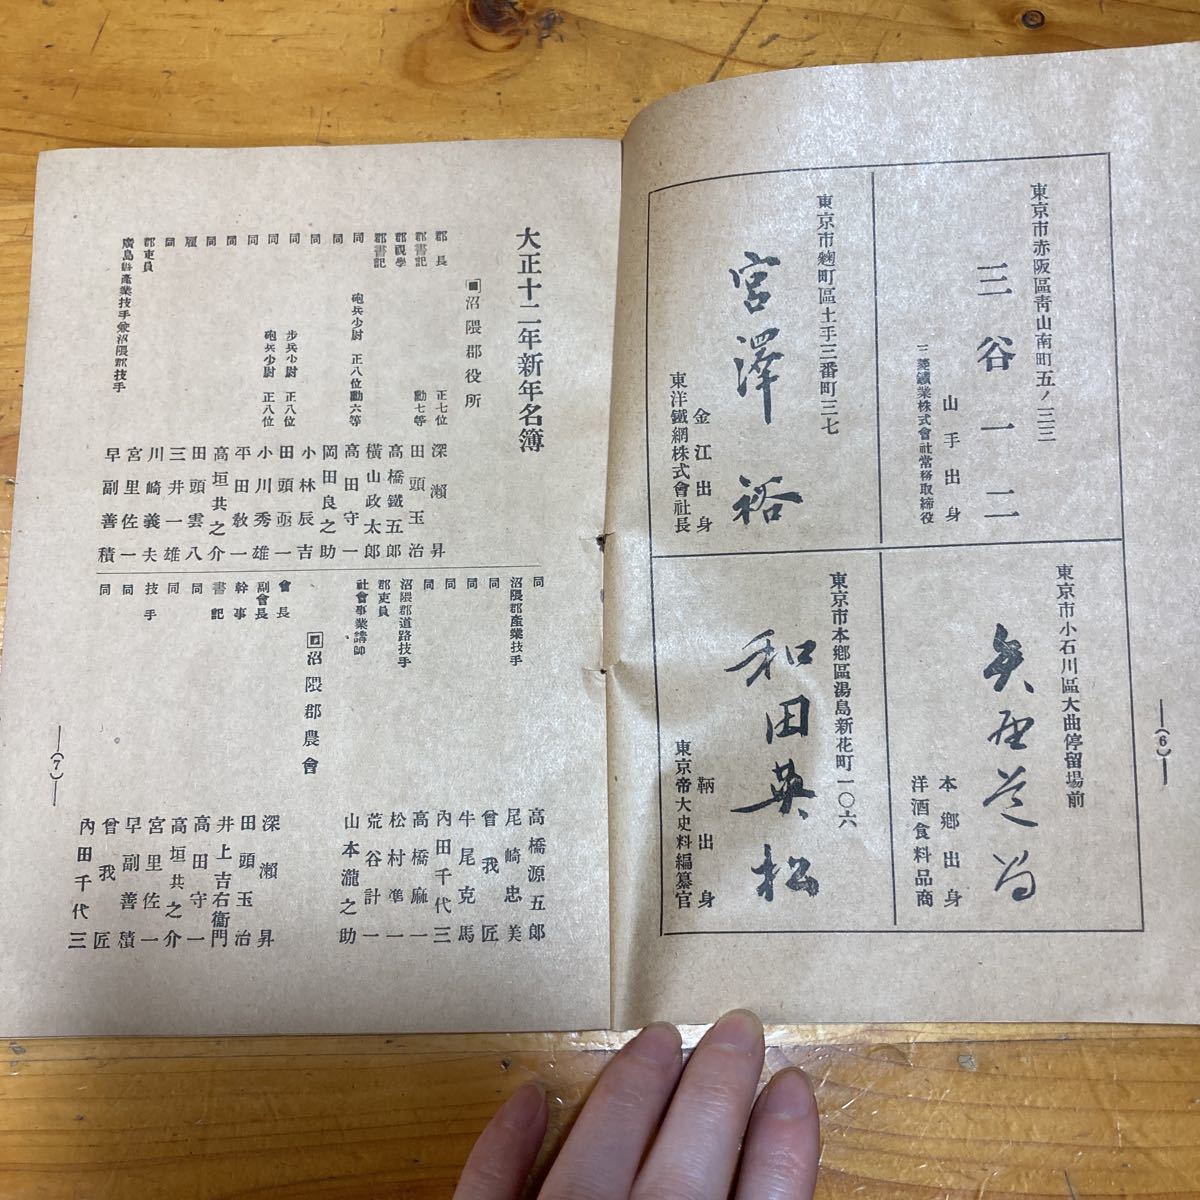 東京市赤阪區靑山南町五ノ三三
三谷一二
山手出身
三菱鑛業株式會社常務取締役
東京市麴町區土手三番町三七
宮澤裕
金江出身
東洋鐵網株式會社長
東京市小石川區大曲停留場前
本鄕出身
洋酒食料品商
東京市本鄕區湯島新花町一〇六
和田英松
鞆出身
東京帝大史料編纂官
(6)
大正十二年新年名簿
沼隈郡役所
郡長 正七位 深瀨昇
郡書記 勳七等 田頭玉治
郡視學 高橋鐵五郎
郡書記 橫山政太郎
同 砲兵少尉 正八位勳六等 高田守一
同 岡田良之助
同 小林辰吉
同 步兵少尉 正八位 田頭亟一
同 砲兵少尉 正八位 小川秀雄
同 平田敎一
同 高垣共之介
雇 田頭雲八
同 三井一雄
川崎義夫
郡吏員 宮里佐一
廣島縣產業技手兼沼隈郡技手 早副善積
同 高橋源五郎
沼隈郡產業技手 尾崎忠美
同 曾我匠
同 牛尾克馬
同 內田千代三
同 高橋麻一
沼隈郡道路技手 松村準一
郡吏員 荒谷計一
社會事業講師 山本瀧之助
沼隈郡農會
會長 深瀨昇
副會長 田頭玉治
幹事 井上吉右衞門
書記 高田守一
同 高垣共之介
同 宮里佐一
技手 早副善積
同 曾我匠
內田千代三
(7)